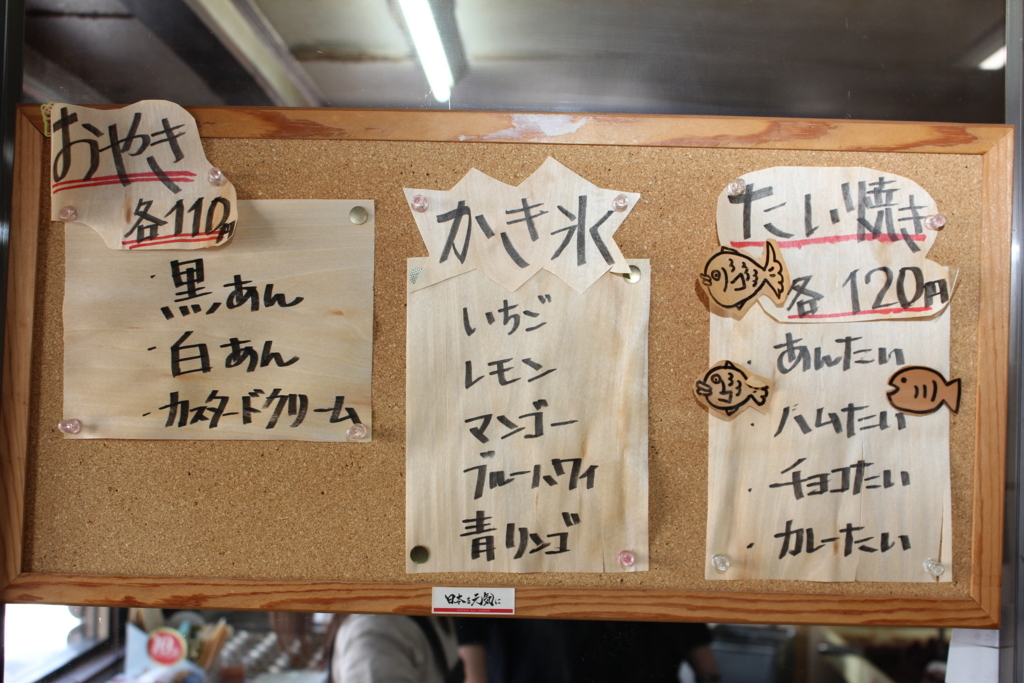 おやき
各110円
・黒あん
・白あん
・カスタードクリーム
かき氷
いちご
レモン
マンゴー
ブルーハワイ
青リンゴ
たい焼き
各120円
・あんたい
・ハムたい
・チョコたい
・カレーたい
日本を元気に